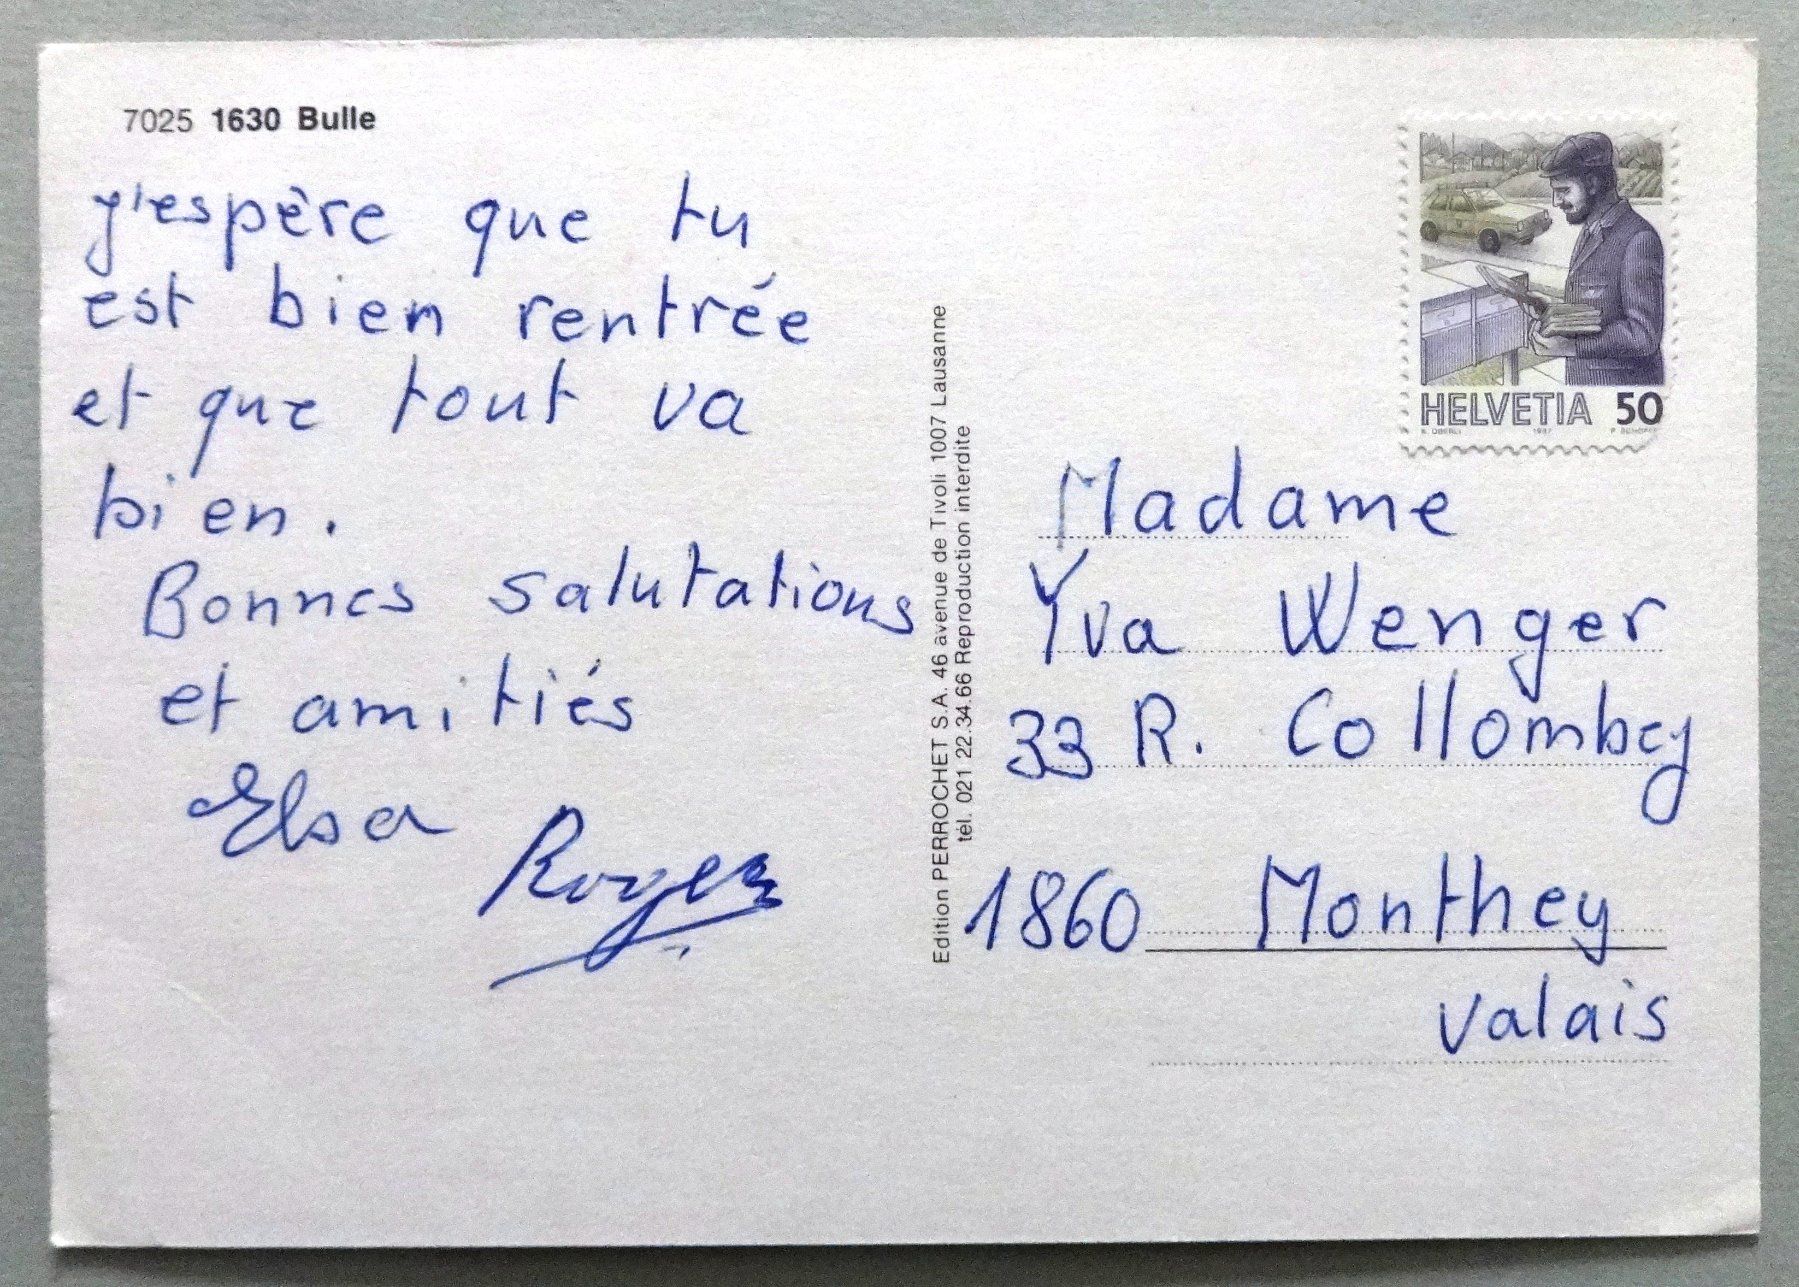 7025 1630 Bulle
j'espère que tu
est bien rentrée
et que tout va
bien.
Bonnes salutations
et amitiés
Elsa
Roger
Edition PERROCHET S.A. 46 avenue de Tivoli 1007 Lausanne
tél. 021 22.34.66 Reproduction interdite
HELVETIA 50
1987
Madame
Yva Wenger
33 R. Collombey
1860 Monthey
Valais